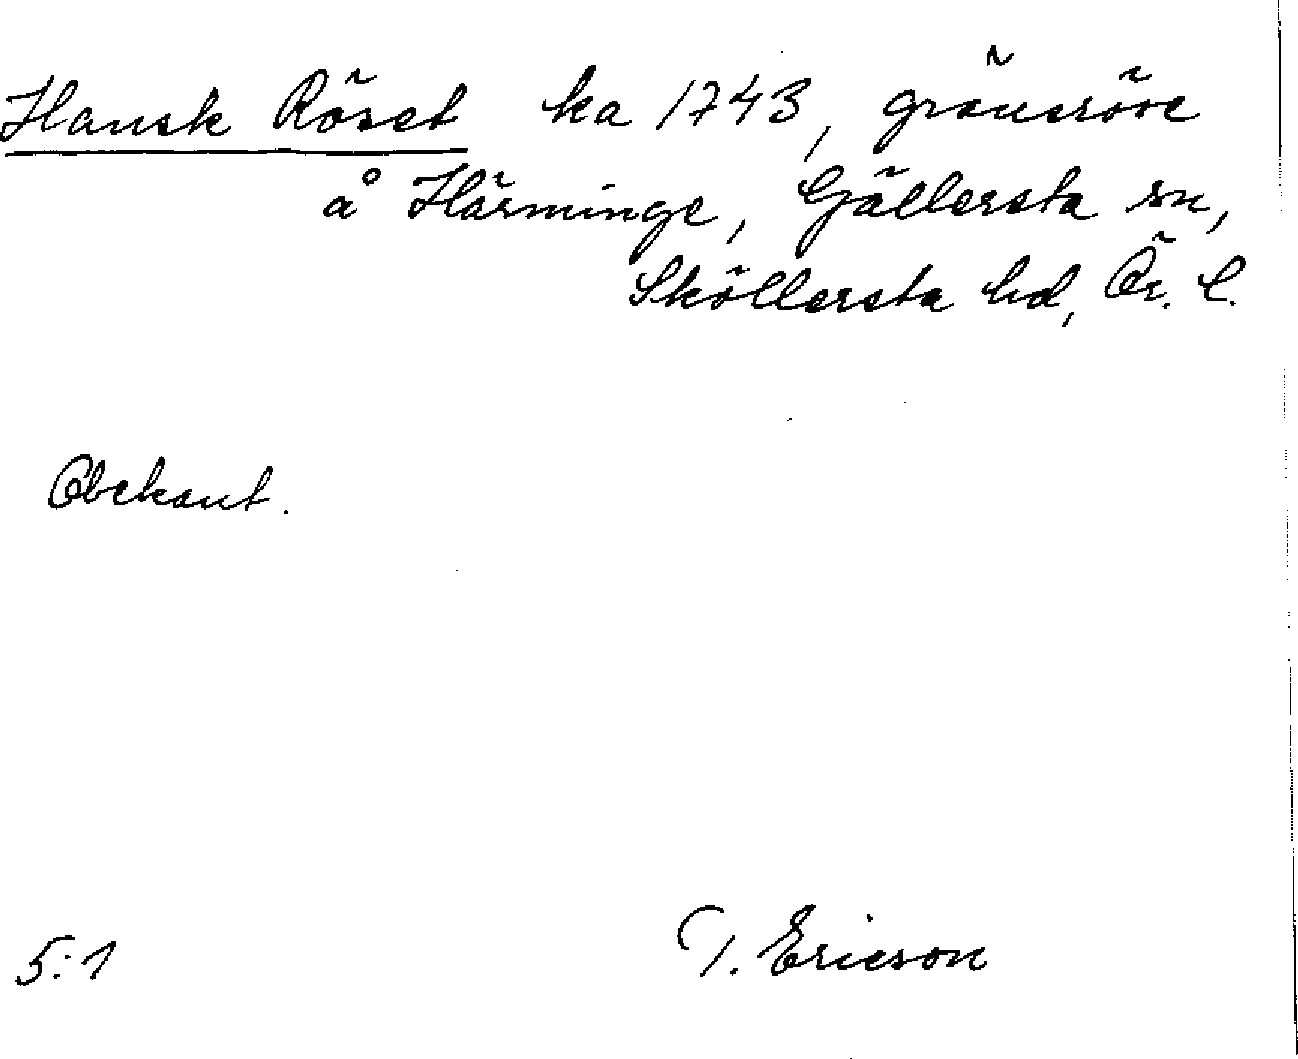 Hansk Röset ka 1743, gränsröse
å Härminge, Gällersta sn,
Sköllersta hd, Ör. l.
Obekant.
5:1
T. Ericson